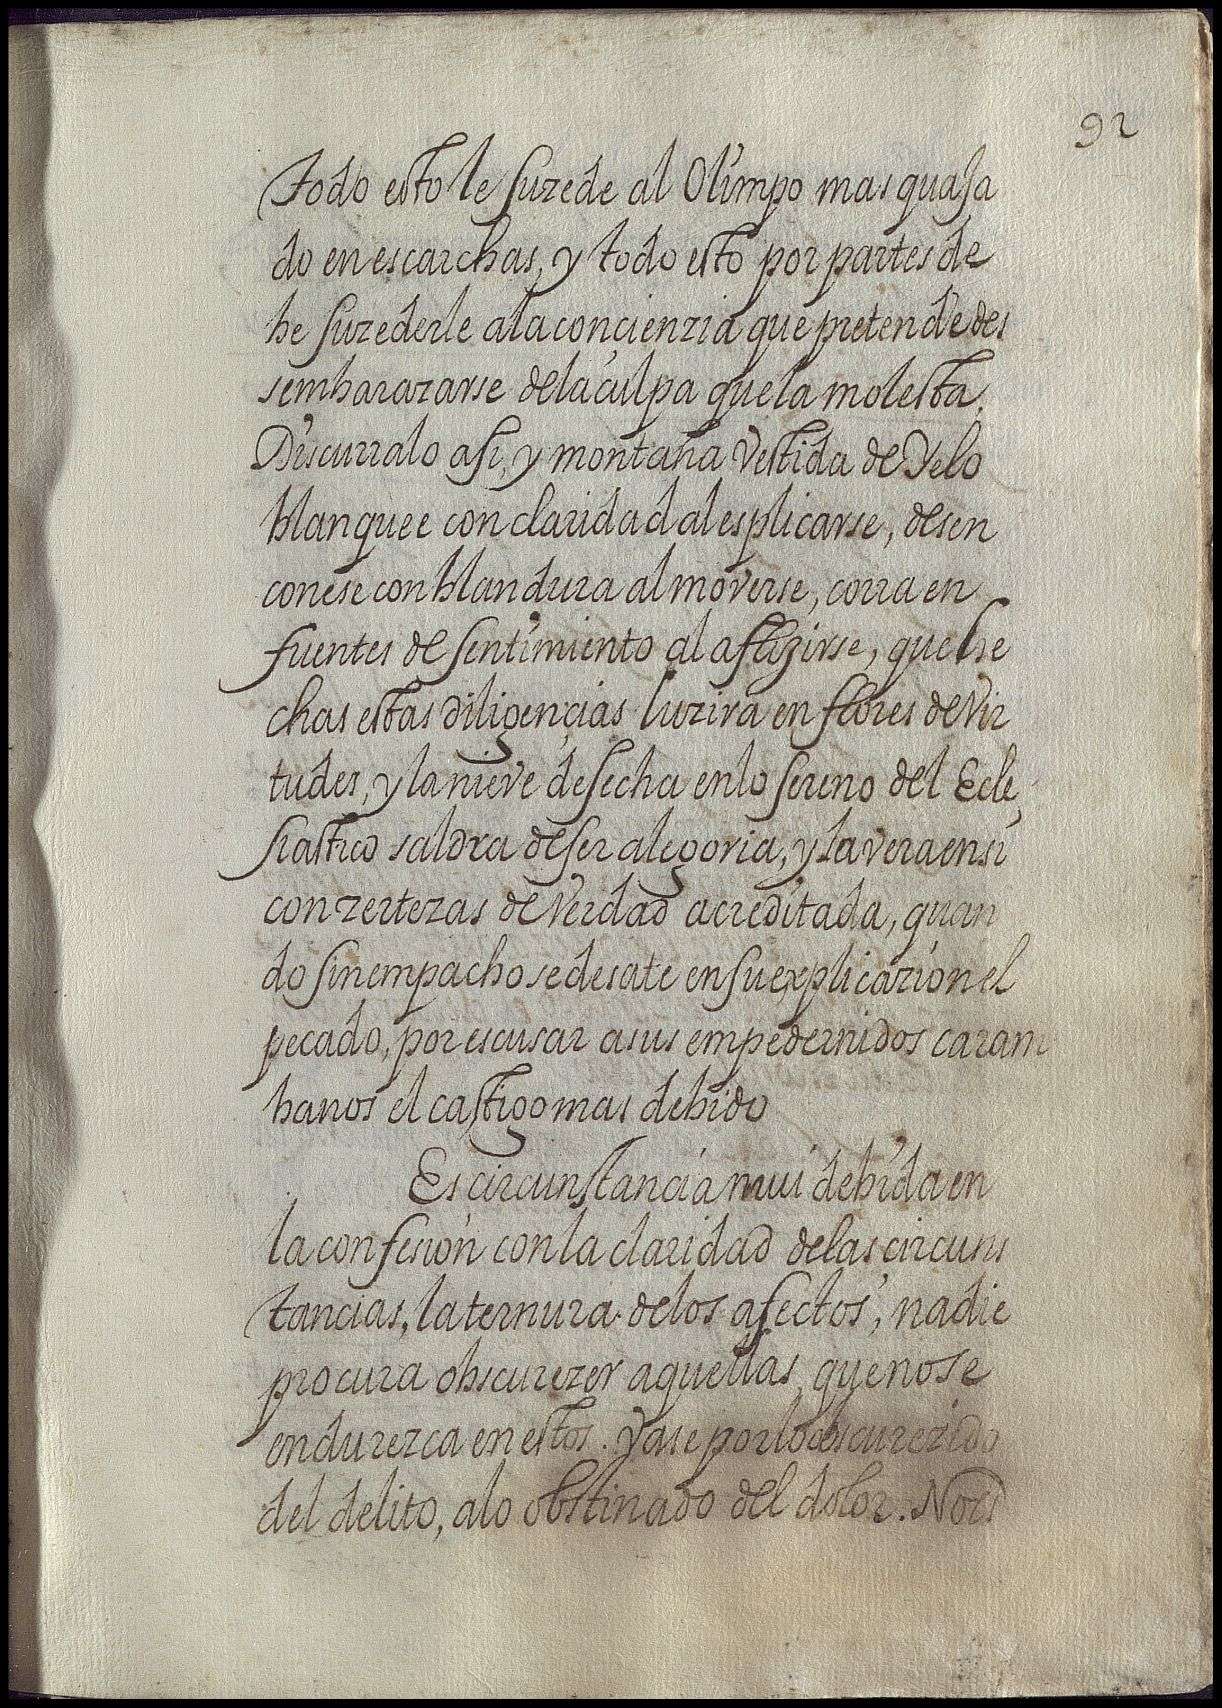 92
Todo esto le suzede al Olimpo mas quaja
do en escarchas, y todo esto por partes de
be suzederle a la concienzia que pretende des
sembarazarse de la culpa que la molesta.
Discurralo asi, y montaña vestida de Yelo
blanquee con claridad al esplicarse, desen
conese con blandura al moverse, corra en
fuentes de sentimiento al aflizirse, que he
chas estas diligencias luzira en flores de Vir
tudes, y la nieve desecha en lo sereno del Ecle
siastico saldra de ser alegoria, y la vera en si
con zertezas de Verdad acreditada, quan
do sin empacho se desate en su explicazion el
pecado, por escusar a sus empedernidos caram
banos el castigo mas debido
Es circunstancia mui debida en
la confesion con la claridad de las circuns
tancias, la ternura de los afectos, nadie
procura obscurezer aquellas, que no se
endurezca en estos. Vase por lo escurezido
del delito, a lo obstinado del dolor. No es